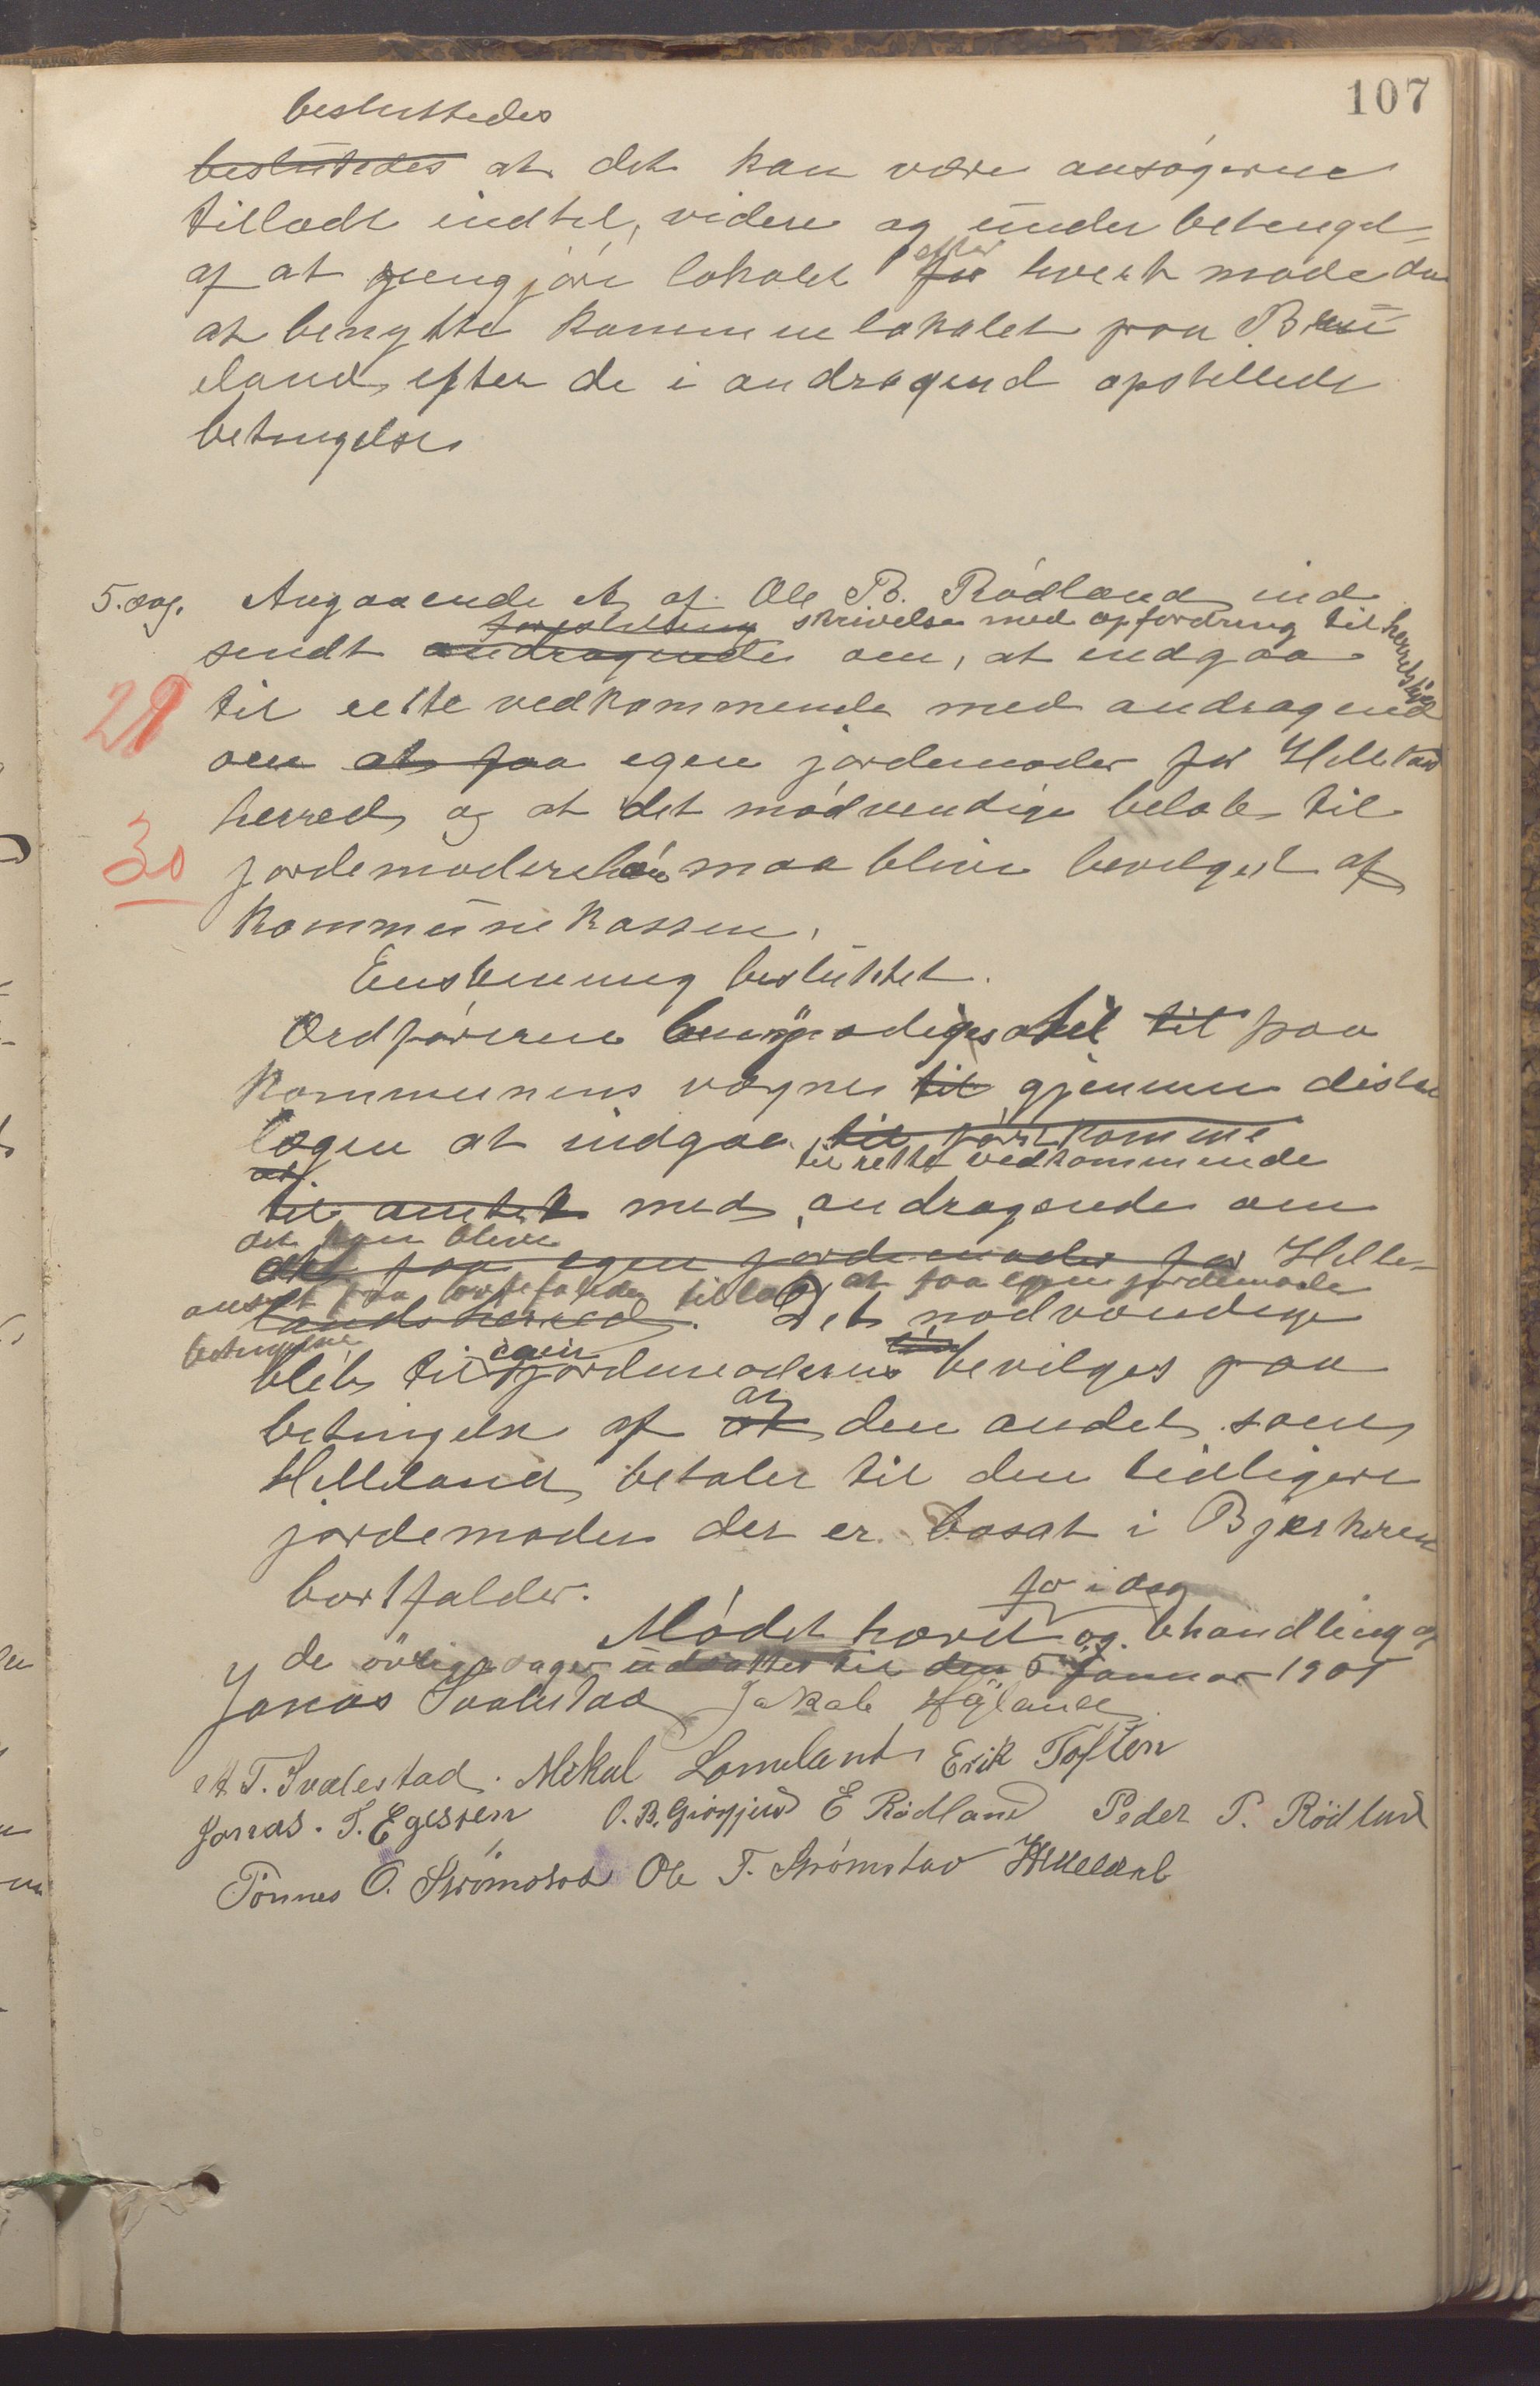 107
besluttedes
beslutedes at det kan være ansøgerne
tilladt indtil videre og under betengel-
af at rengjøre lokalet efter for hvert møde da
at benytte kommunelokalet paa Bru
eland efter de i andragend opstillede
betingelser
5. sag. Angaaende et af Ole B. Rødland ind
forestilling skrivelse med opfordring til herredstyre
sendt andragende om, at indgaa
29 til rette vedkommende med andragend
om at faa egen jordemoder for Helleland
herred og at det nødvendige beløb til
30 jordemoderløn maa blive bevilget af
kommunekassen.
Enstemmig besluttet.
Ordføreren bemyndiges til til paa
kommunens vægne til gjennem distri
lægen at indgaa til førekomme
at til rette vedkommende
til amtet med andragende om
det kan blive
at faa egen jordemoder for Helle-
anset paa tilladt at faa egen jordemode
landsherred. Det nødvendige
betingelse egen løn
bleb til jordemoderen bevilges paa
at
betingelse af at den andel som
Helleland betaler til den tidligere
jordemoder der er bosat i Bjerkrem
bortfalder. for i dag
Mødet hævet og behandling af
de øvrige sager udsættes til den 5 Januar 1905
Jonas Svalestad Jakob Høyland
A T. Svalestad. Mikal Lomeland Erik Toften
Jonas. T. Egessen O. B. Gjøgjerd E Rødland Peder P. Rødland
Tønnes O. Strømstad Ole T. Strømstad